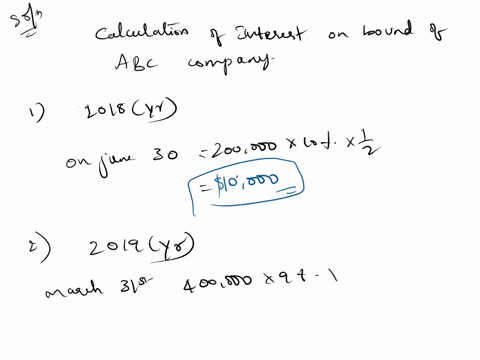 Soln
Calculation of Interest on bound of
ABC company.
1) 2018 (yr)
on june 30 = 200,000 × 10%. × 1/2
= $10,000
2) 2019 (yr)
march 31st 400,000 × 9%